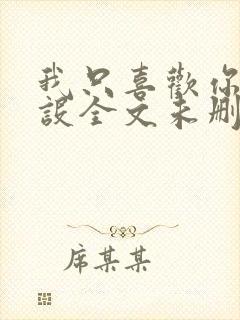 我只喜歡你
設全文未刪
席某某